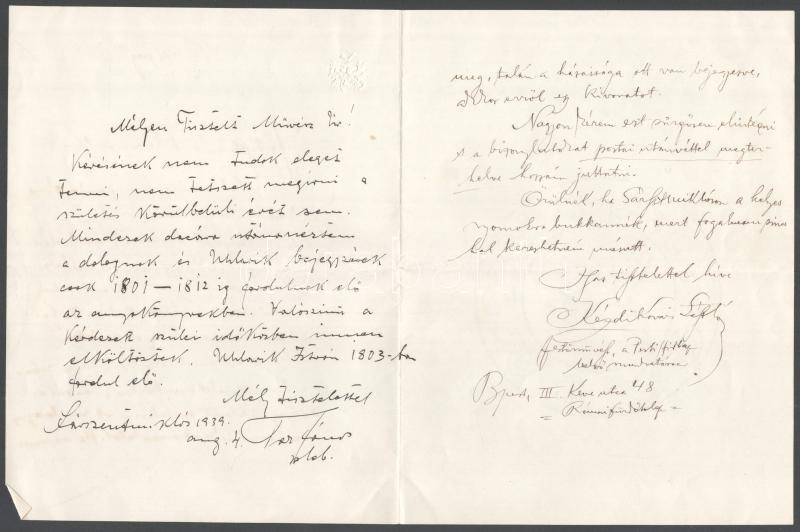 Mélyen Tisztelt Művész Úr!
Kérésének nem tudok eleget
tenni, nem tetszett megírni a
születés körülbelüli évét sem.
Mindezek dacára utánanéztem
a dolognak és Uhlarik bejegyzések
csak 1801–1812 ig fordulnak elő
az anyakönyvekben. Valószínű a
kérdezett szülei időközben innen
elköltöztek. Uhlarik István 1803-ban
fordul elő.
Mély tisztelettel
Sárszentmiklós 1939.
aug. 4. János
pleb.
meg, talán a házassága ott van bejegyezve,
akkor erről egy kivonatot.
Nagyon kérem ezt sürgősen elintézni
s a bizonylatokat postai utánvéttel megter-
helve hozzám juttatni.
Örülnék, ha Sárszentmiklóson a helyes
nyomokra bukkannék, mert fogalmam sincs
hol kereshetném másutt.
tisztelettel híve
Kézdi Kovács László
festőművész, a Pesti Hirlap
belső munkatársa
Bpest, III Keve utca 48
= Rómaifürdőtelep =